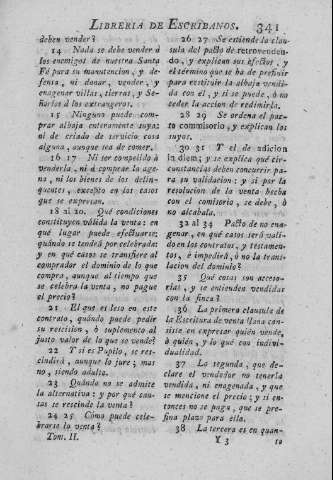 LIBRERIA DE ESCRIBANOS. 341
deben vender?
14 Nada se debe vender á
los enemigos de nuestra Santa
Fé para su manutencion, y de-
fensa, ni donar, vender, y
enagenar villas, tierras, y Se-
ñorías á los extrangeros.
15 Ninguno puede com-
prar alhaja enteramente suya:
ni de criado de servicio cosa
alguna, aunque sea de comer.
16 17 Ni ser compelido á
venderla, ni á comprar la age-
na, ni los bienes de los delin-
quentes, excepto en los casos
que se expresan.
18 al 20. Qué condiciones
constituyen válida la venta: en
qué lugar puede efectuarse:
quándo se tendrá por celebrada:
y en qué casos se transfiere al
comprador el dominio de lo que
compra, aunque al tiempo que
se celebra la venta, no pague
el precio?
21 El que es leso en este
contrato, quándo puede pedir
su rescision, ò suplemento al
justo valor de lo que se vende?
22 Y si es Pupilo, se res-
cindirá, aunque lo jure; mas
no, siendo adulto.
23 Quándo no se admite
la alternativa: y por qué cau-
sas se rescinde la venta?
24 25 Cómo puede cele-
brarse la venta?
Tom. II.
26 27 Se estiende la clau-
sula del pacto de retrovenden-
do, y explican sus efectos, y
el término que se ha de prefinir
para restituir la alhaja vendi-
da con él, y si se puede, ò no
ceder la accion de redimirla.
28 29 Se ordena el pacto
commisorio, y explican los
suyos.
30 31 Y el de adicion
in diem; y se explica qué cir-
cunstancias deben concurrir pa-
ra su validacion: y si por la
resolucion de la venta hecha
con el comisorio, se debe, ò
no alcabala.
32 al 34 Pacto de no ena-
genar, en qué casos será váli-
do en los contratos, y testamen-
tos, é impedirá, ò no la trans-
lacion del dominio?
37 Qué cosas son acceso-
rias, y se entienden vendidas
con la finca?
36 La primera clausula de
la Escritura de venta llana con-
siste en expresar quién vende,
à quién, y lo que con indivi-
dualidad.
37 La segunda, que de-
clare el vendedor no tenerla
vendida, ni enagenada, y que
se mencione el precio; y si en-
tonces no se paga, que se pre-
fina plazo para ello.
38 La tercera es en quan-
Y 3 to